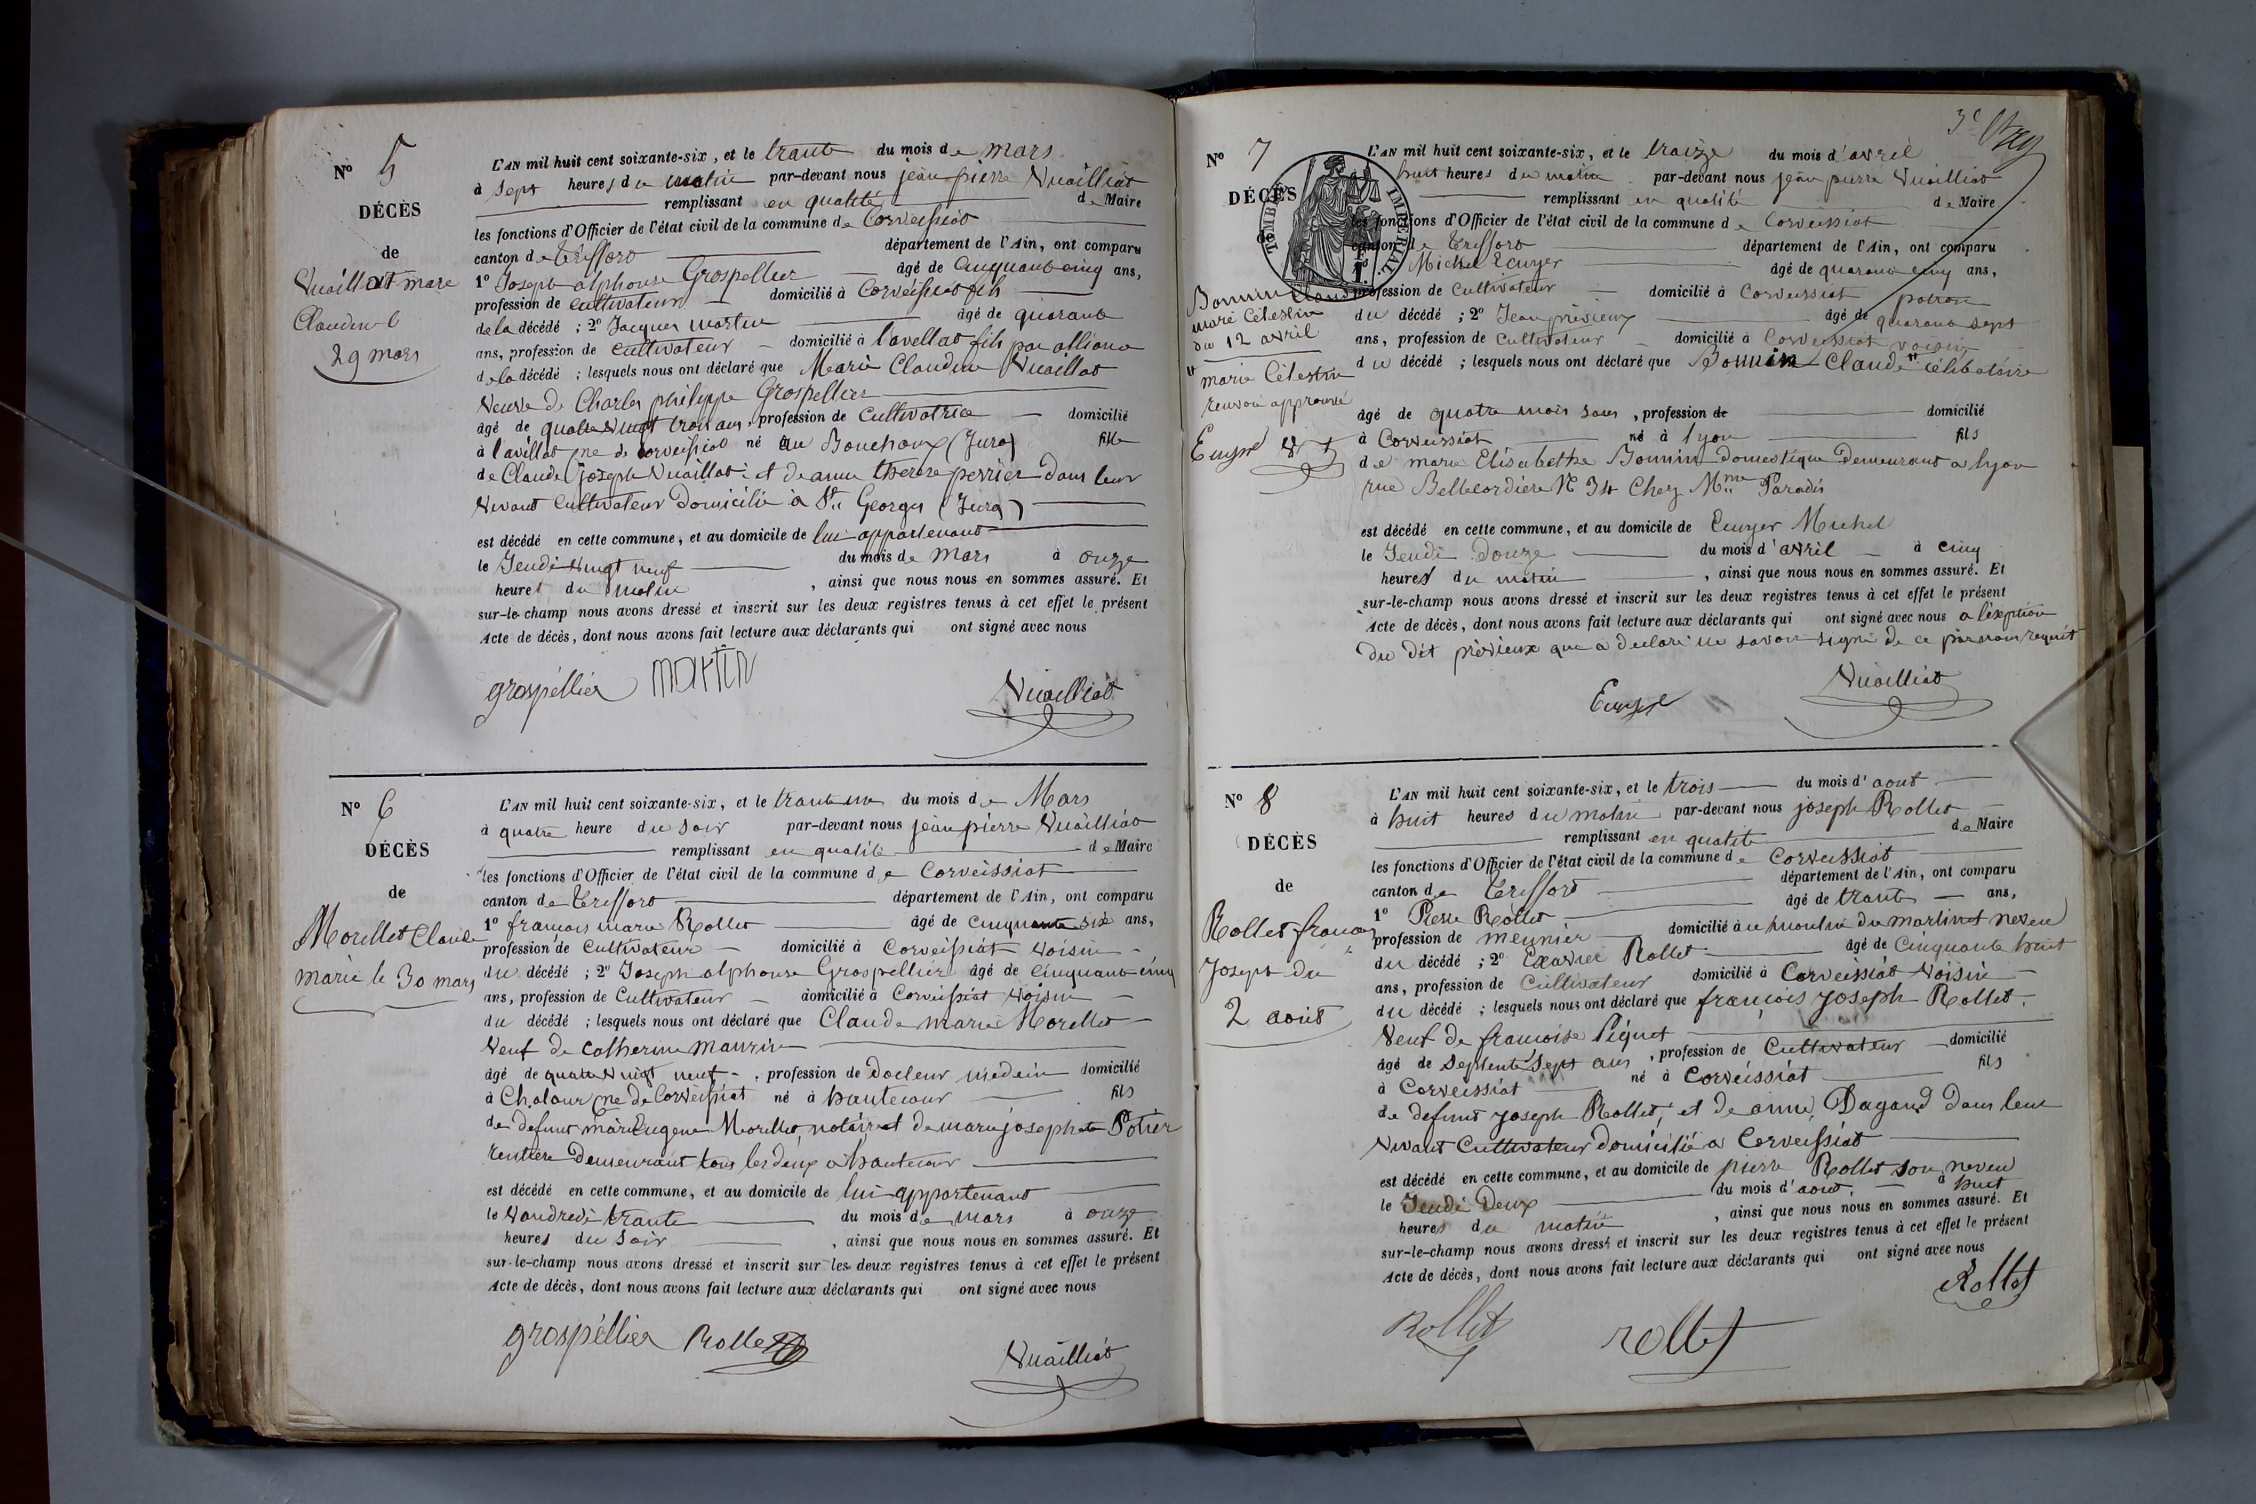 N° 5
DÉCÈS
de
Vuaillat marie
Claudine le
29 mars
L'AN mil huit cent soixante-six, et le trante du mois de mars
à sept heures du matin par-devant nous jean pierre Vuailliat
remplissant en qualité de Maire
les fonctions d'Officier de l'état civil de la commune de Corveissiat
canton de Treffort département de l'Ain, ont comparu
1° Joseph alphonse Grospellier âgé de Cinquante cinq ans,
profession de cultivateur domicilié à Corveissiat fils
de la décédé ; 2° Jacques martin âgé de quarante
ans, profession de cultivateur domicilié à l'avellat fils par alliance
de la décédé ; lesquels nous ont déclaré que Marie Claudine Vuaillat
Veuve de Charles philippe Grospellier
âgé de quatre vingt trois ans, profession de Cultivatrice domicilié
à l'avillat cne de corveissiat né au Bouchoux (Jura) fille
de Claude joseph Vuaillat et de anne therese perrier dans leur
Vivant Cultivateur Domicilié à St Georges (Jura)
est décédé en cette commune, et au domicile de lui appartenant
le Jeudi Vingt neuf du mois de mars à onze
heures du matin, ainsi que nous nous en sommes assuré. Et
sur-le-champ nous avons dressé et inscrit sur les deux registres tenus à cet effet le présent
Acte de décès, dont nous avons fait lecture aux déclarants qui ont signé avec nous
grospéllier martin Vuailliat
N° 6
DÉCÈS
de
Morellet Claude
marie le 30 mars
L'AN mil huit cent soixante-six, et le trante un du mois de Mars
à quatre heure du soir par-devant nous jean pierre Vuailliat
remplissant en qualité de Maire
les fonctions d'Officier de l'état civil de la commune de Corveissiat
canton de Treffort département de l'Ain, ont comparu
1° françois marie Rollet âgé de cinquante six ans,
profession de Cultivateur domicilié à Corveissiat Voisin
du décédé ; 2° Joseph alphonse Grospellier âgé de Cinquante cinq
ans, profession de Cultivateur domicilié à Corveissiat Voisin
du décédé ; lesquels nous ont déclaré que Claude marie Morellet
Veuf de Catherine Maurin
âgé de quatre Vingt neuf, profession de Docteur médecin domicilié
à Chalour cne de Corveissiat né à hautecour fils
de defunt marie Eugene Morellet notaire et de marie josephte Potier
rentiere Demeurant tous les deux a hautecour
est décédé en cette commune, et au domicile de lui appartenant
le Vendredi trante du mois de mars à onze
heures du soir, ainsi que nous nous en sommes assuré. Et
sur-le-champ nous avons dressé et inscrit sur les deux registres tenus à cet effet le présent
Acte de décès, dont nous avons fait lecture aux déclarants qui ont signé avec nous
grospéllier Rollet Vuailliat
3e
N° 7
DÉCÈS
de
TIMBRE IMPERIAL
Bonnin Claude
marie Célestin
du 12 avril
marie Célestin
renvoi approuvé
L'AN mil huit cent soixante-six, et le traize du mois d'avril
huit heures du matin par-devant nous jean pierre Vuailliat
remplissant en qualité de Maire
les fonctions d'Officier de l'état civil de la commune de Corveissiat
canton de Treffort département de l'Ain, ont comparu
1° Michel Ecuyer âgé de quarante cinq ans,
profession de Cultivateur domicilié à Corveissiat patron
du décédé ; 2° Jean prévieux âgé de quarante sept
ans, profession de Cultivateur domicilié à Corveissiat voisin
du décédé ; lesquels nous ont déclaré que Bonnin Claude célibataire
âgé de quatre mois , profession de domicilié
à Corveissiat né à lyon fils
de marie Elisabethe Bonnin domestique Demeurant a lyon
rue Bellecordière N° 34 Chez Mme Paradis
est décédé en cette commune, et au domicile de Ecuyer Michel
le Jeudi Douze du mois d'avril à cinq
heures du matin, ainsi que nous nous en sommes assuré. Et
sur-le-champ nous avons dressé et inscrit sur les deux registres tenus à cet effet le présent
Acte de décès, dont nous avons fait lecture aux déclarants qui ont signé avec nous a l'exption
du dit prévieux que a declaré ne savoir signé de ce par nous requit
Vuailliat
N° 8
DÉCÈS
de
Rollet françois
Joseph du
2 aout
L'AN mil huit cent soixante-six, et le trois du mois d'aout
à huit heures du matin par-devant nous joseph Rollet
remplissant en qualité de Maire
les fonctions d'Officier de l'état civil de la commune de Corveissiat
canton de Treffort département de l'Ain, ont comparu
1° Pierre Rollet âgé de trante ans,
profession de meunier domicilié à u moulin du martinet neveu
du décédé ; 2° Exavier Rollet âgé de Cinquante huit
ans, profession de Cultivateur domicilié à Corveissiat Voisin
du décédé ; lesquels nous ont déclaré que françois joseph Rollet
Veuf de francoise Péquet
âgé de Septente Sept ans, profession de Cultivateur domicilié
à Corveissiat né à Corveissiat fils
de defunt joseph Rollet, et de anne Dagand Dans leur
Vivant Cultivateur domicilié a Corveissiat
est décédé en cette commune, et au domicile de pierre Rollet son neveu
le Jeudi Deux du mois d'aout, à huit
heures du matin, ainsi que nous nous en sommes assuré. Et
sur-le-champ nous avons dressé et inscrit sur les deux registres tenus à cet effet le présent
Acte de décès, dont nous avons fait lecture aux déclarants qui ont signé avec nous
Rollet
Rollet rollet